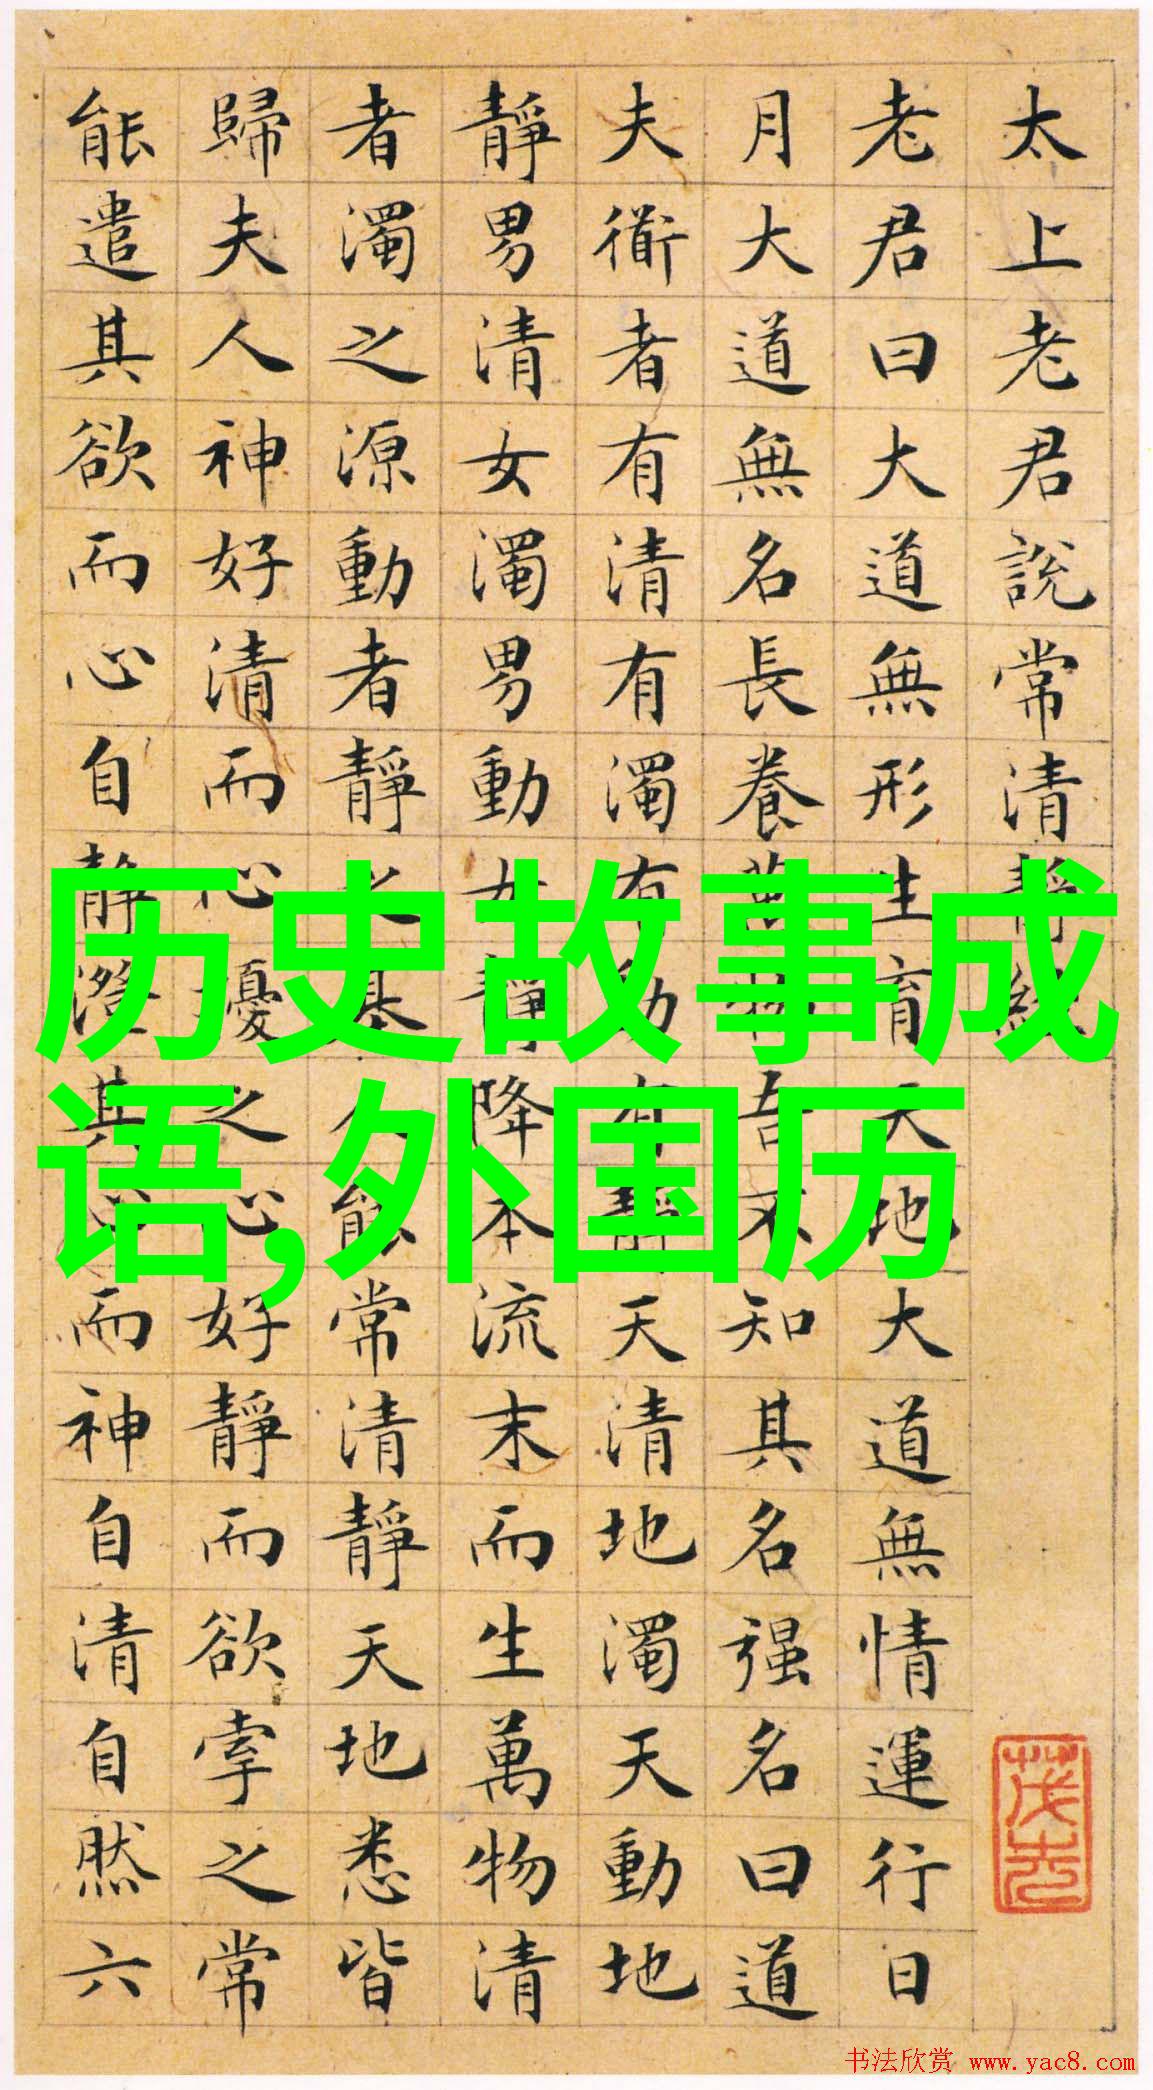 太上老君說常清靜經
老君曰大道無形生育天地大道無情運行日
月大道無名長養萬物吾不知其名强名曰道
夫衜者有清有濁有動有靜天清地濁天動地
靜男清女濁男動女靜降本流末而生萬物清
者濁之源動者靜之基人能常清靜天地悉皆
歸夫人神好清而心擾之心好靜而欲牽之常
能遣其欲而心自静澄其心而神自清自然六
历史故事成
语,外国历
书法欣赏 www.yac8.com